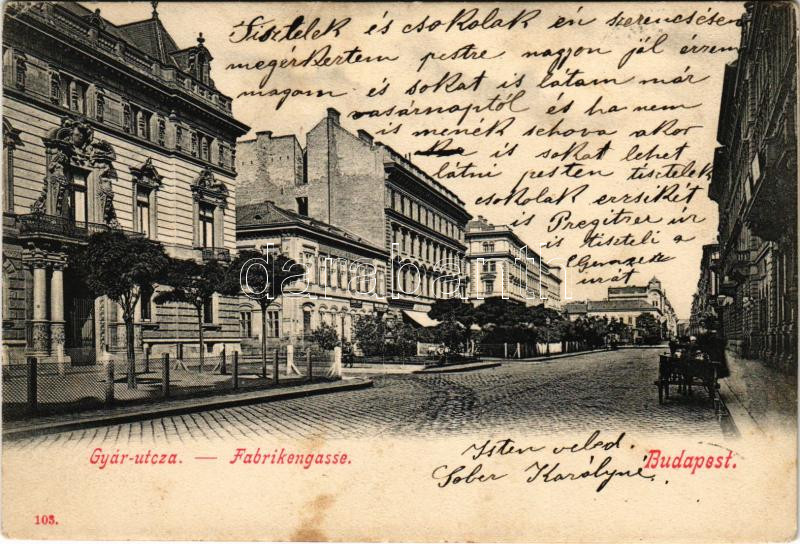 Tisztelek és csokolak én szerencsésen
megérkertem pestre nagyon jól érzem
magam és sokat is látam már
vasárnaptól és ha nem
is menék sehova akor
is sokat lehet
látni pesten tisztelek
csokolak erzsikét
is Pregitzer úr
is tiszteli a
urát
Gyár-utcza. — Fabrikengasse.
Isten veled.
Budapest.
Sober Károlyné
103.
darabanth